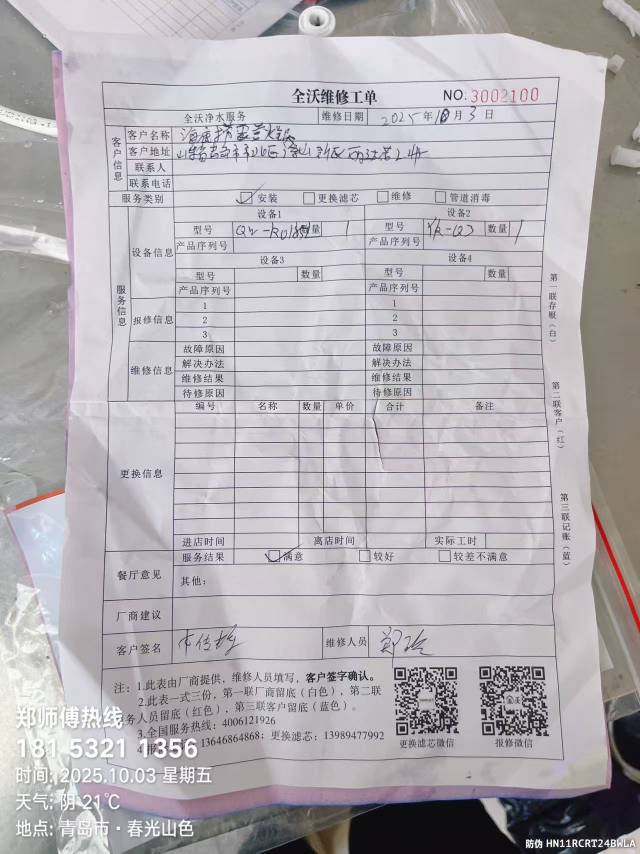 全沃维修工单
NO.3002100
全沃净水服务 维修日期 2025年10月3日
客户信息
客户名称
客户地址
联系人
联系电话
服务类别 安装 更换滤芯 维修 管道消毒
服务信息
设备信息
设备1 设备2
型号 数量 1 型号 YR-Q3 数量 1
产品序列号 产品序列号
设备3 设备4
型号 数量 型号 数量
产品序列号 产品序列号
报修信息
1 1
2 2
3 3
维修信息
故障原因 故障原因
解决办法 解决办法
维修结果 维修结果
待修原因 待修原因
更换信息
编号 名称 数量 单价 合计 备注
进店时间 离店时间 实际工时
餐厅意见
服务结果 满意 较好 较差不满意
其他:
厂商建议
客户签名 维修人员
注:1.此表由厂商提供,维修人员填写,客户签字确认。
2.此表一式三份,第一联厂商留底(白色),第二联
务人员留底(红色),第三联客户留底(蓝色)。
3.全国服务热线:4006121926
13646864868;更换滤芯:13989477992
更换滤芯微信 报修微信
第一联存根(白)
第二联客户(红)
第三联记账(蓝)
郑师傅热线
181 5321 1356
时间: 2025.10.03 星期五
天气: 阴 21℃
地点: 青岛市·春光山色
防伪 HN11RCRT24BWLA